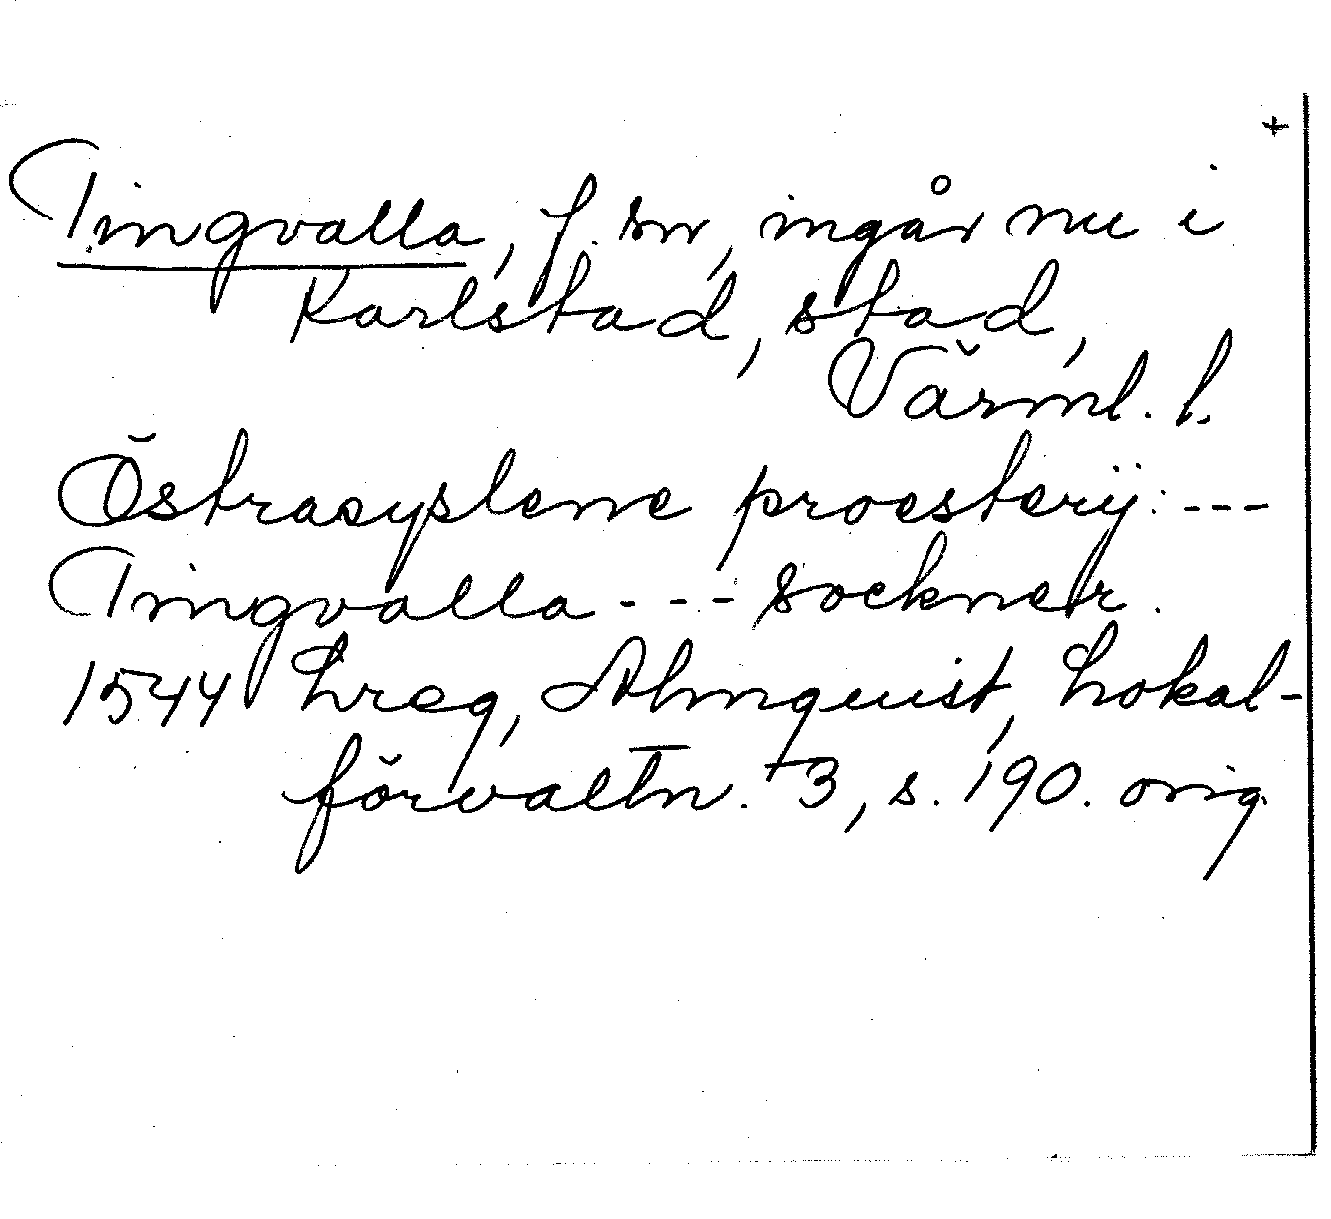 +
Tingvalla, f. sn, ingår nu i
Karlstad, stad,
Värml. l.
Östrasyslene proesterij: ---
Tingvalla --- sockner.
1544 Lreg, Almquist, Lokal-
förvaltn. 3, s. 190. orig.